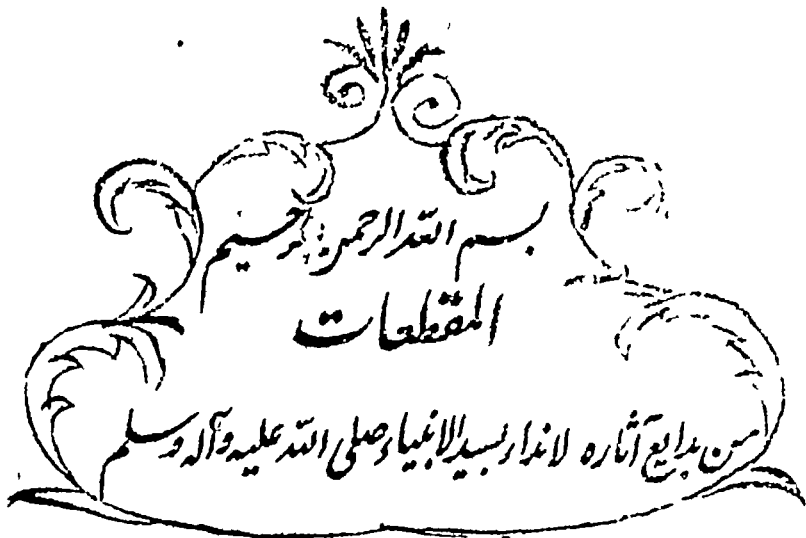 بسم الله الرحمن الرحیم
المقطعات
من بدایع آثاره لانذار سید الانبیاء صلی الله علیه وآله وسلم